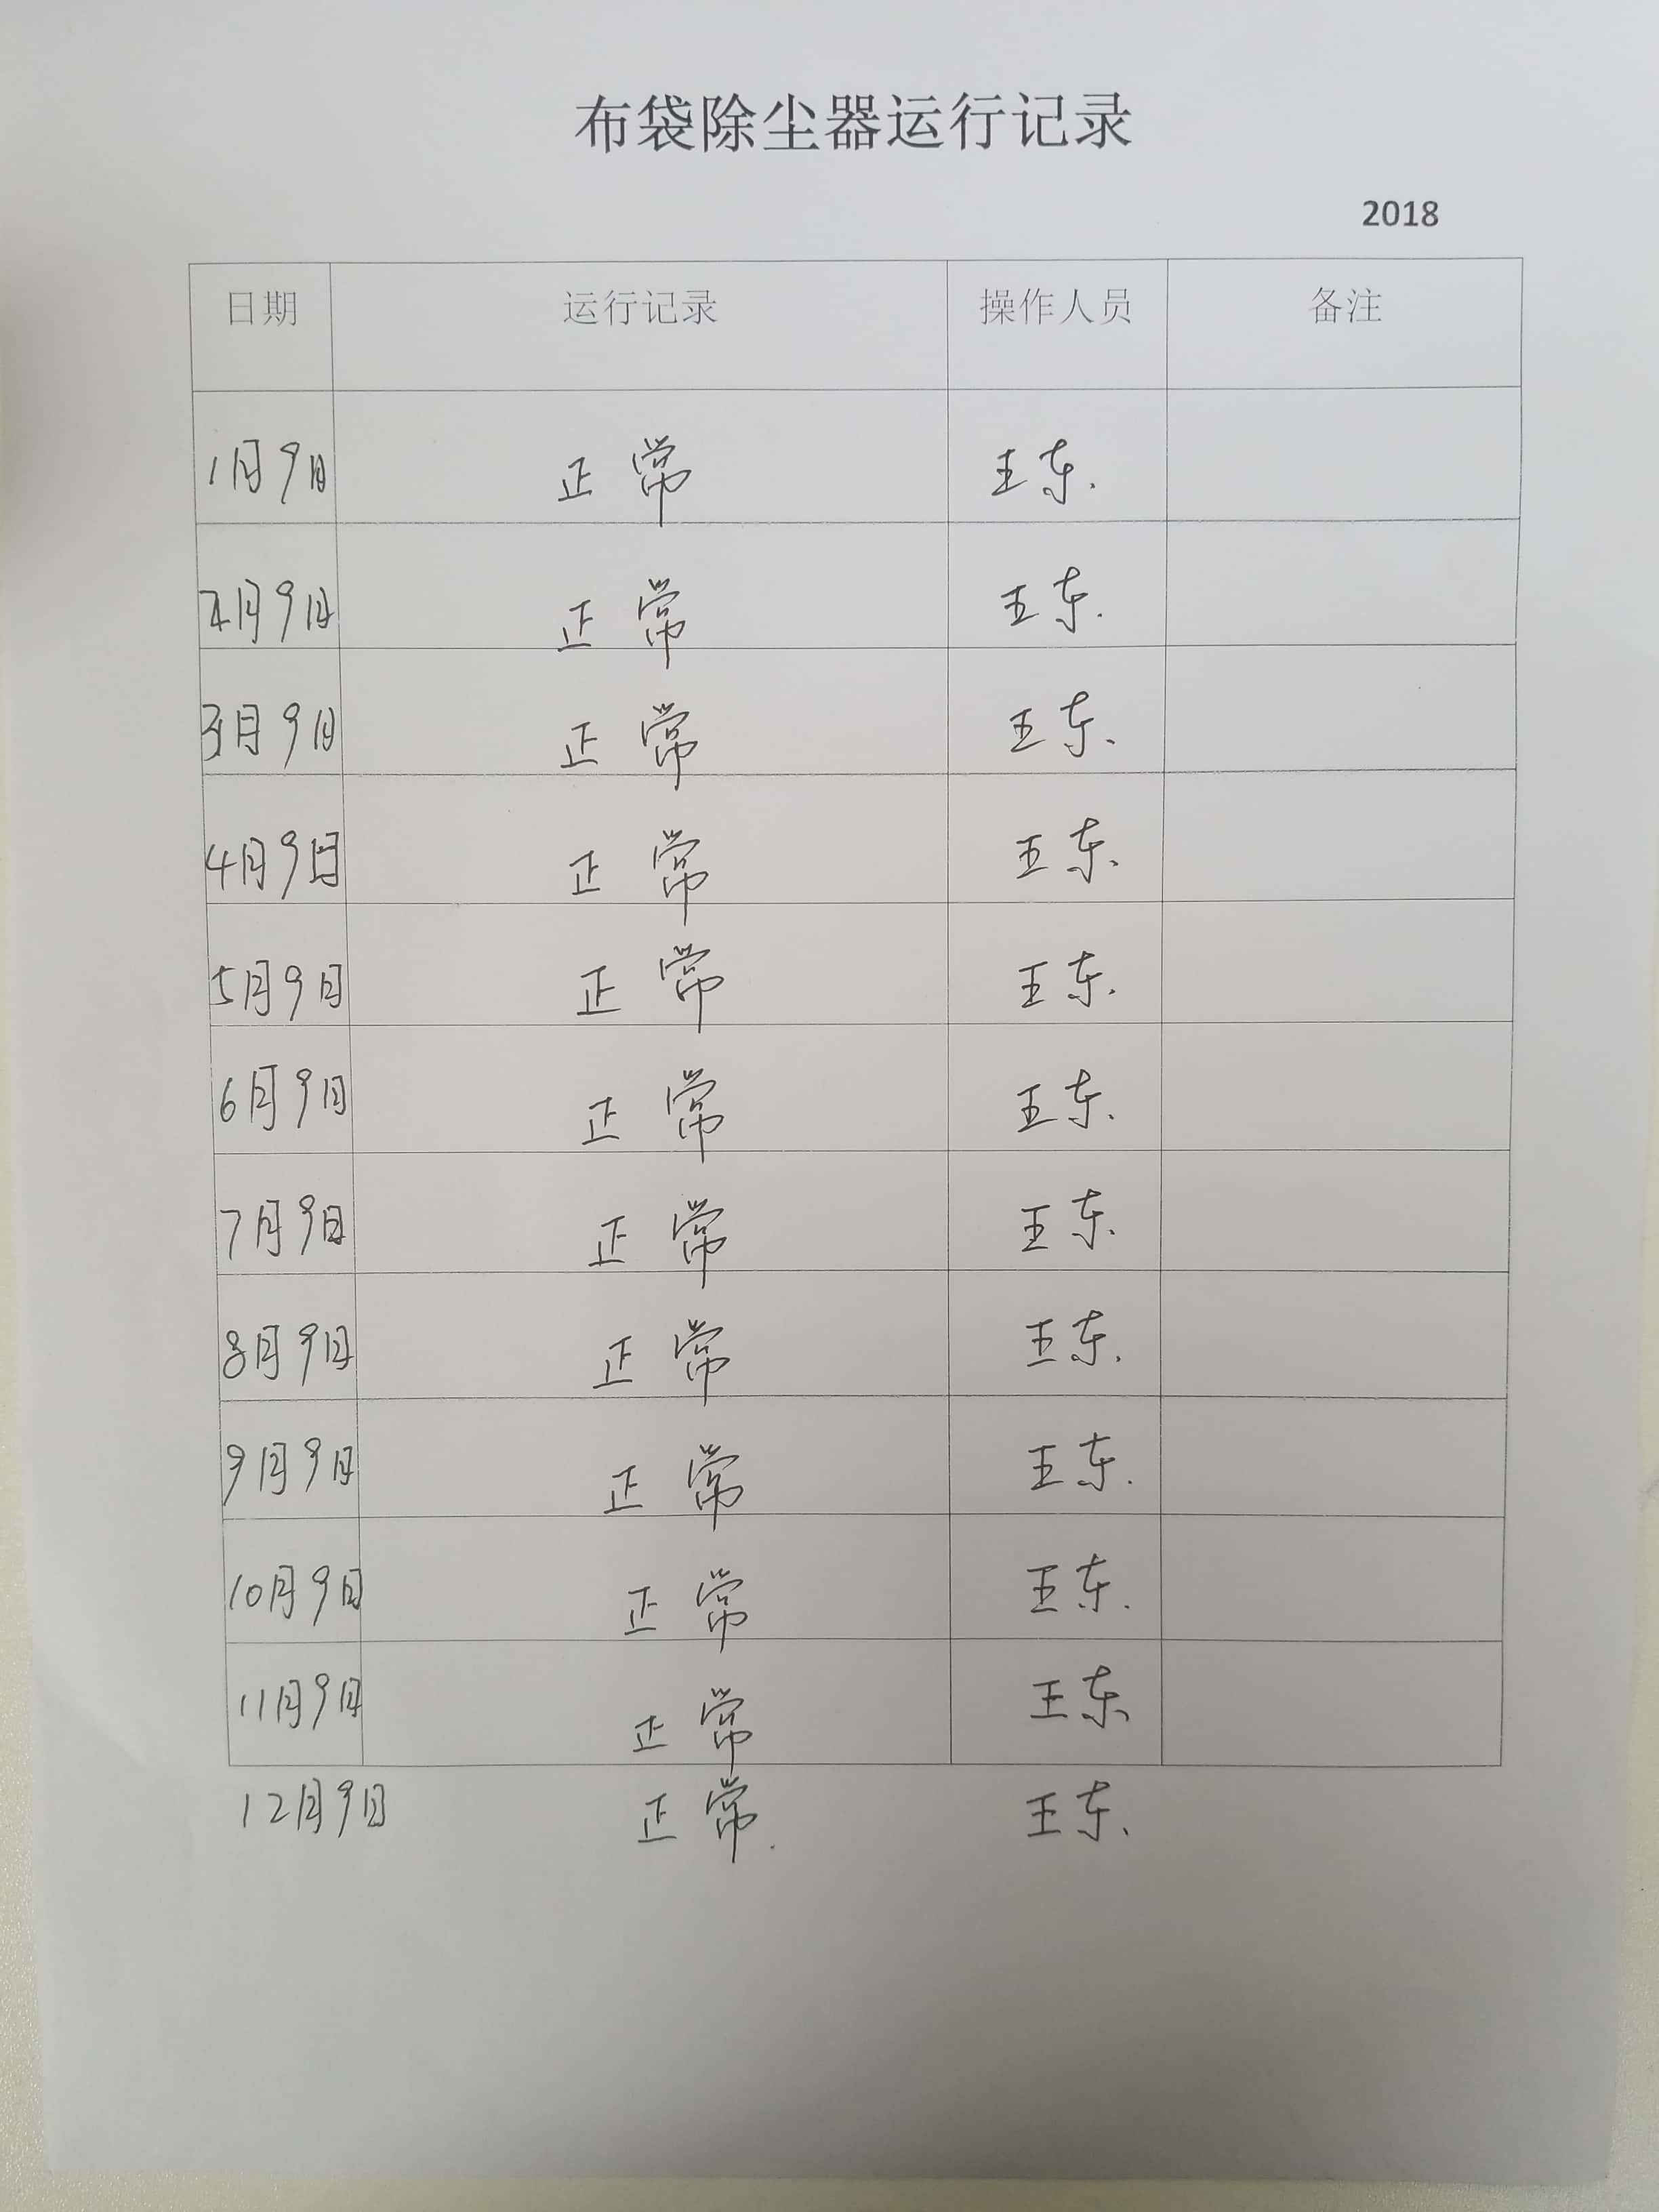 布袋除尘器运行记录
2018
日期 运行记录 操作人员 备注
1月9日 正常 王东.
2月9日 正常 王东.
3月9日 正常 王东.
4月9日 正常 王东.
5月9日 正常 王东.
6月9日 正常 王东.
7月9日 正常 王东.
8月9日 正常 王东.
9月9日 正常 王东.
10月9日 正常 王东.
11月9日 正常 王东
12月9日 正常. 王东.